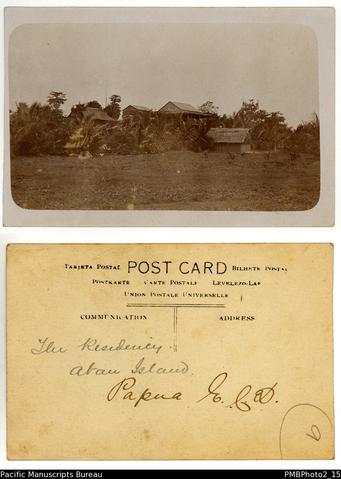 TARJETA POSTAL POST CARD BILHETE POSTAL
POSTKARTE CARTE POSTALE LEVELEZO-LAP
UNION POSTALE UNIVERSELLE
COMMUNICATION ADDRESS
The Residency
Abau Island
Papua
9
Pacific Manuscripts Bureau PMBPhoto2_15